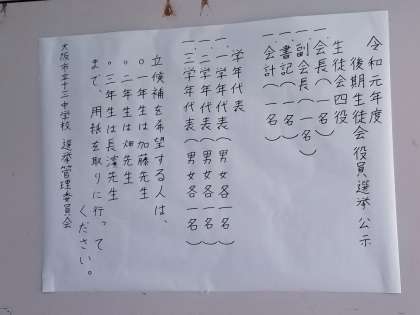 令和元年度
後期生徒会役員選挙 公示
生徒会四役
一.会長(一名)
一.副会長(一名)
一.書記(一名)
一.会計(一名)
学年代表
一.一学年代表(男女各一名)
一.二学年代表(男女各一名)
一.三学年代表(男女各一名)
立候補を希望する人は、
○一年生は加藤先生
○二年生は畑先生
○三年生は長濱先生
まで、用紙を取りに行って
ください。
大阪市立十三中学校 選挙管理委員会